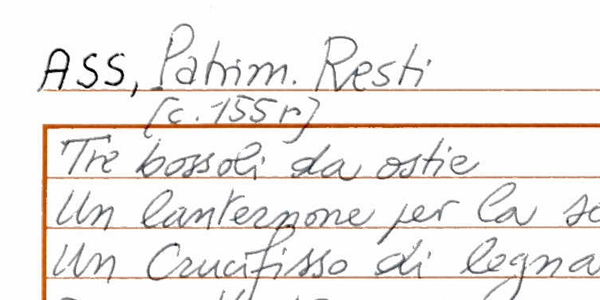 ASS, Patrim. Resti
[c. 155r]
Tre bossoli da ostie
Un lanternone per la
Un Crucifisso di legna